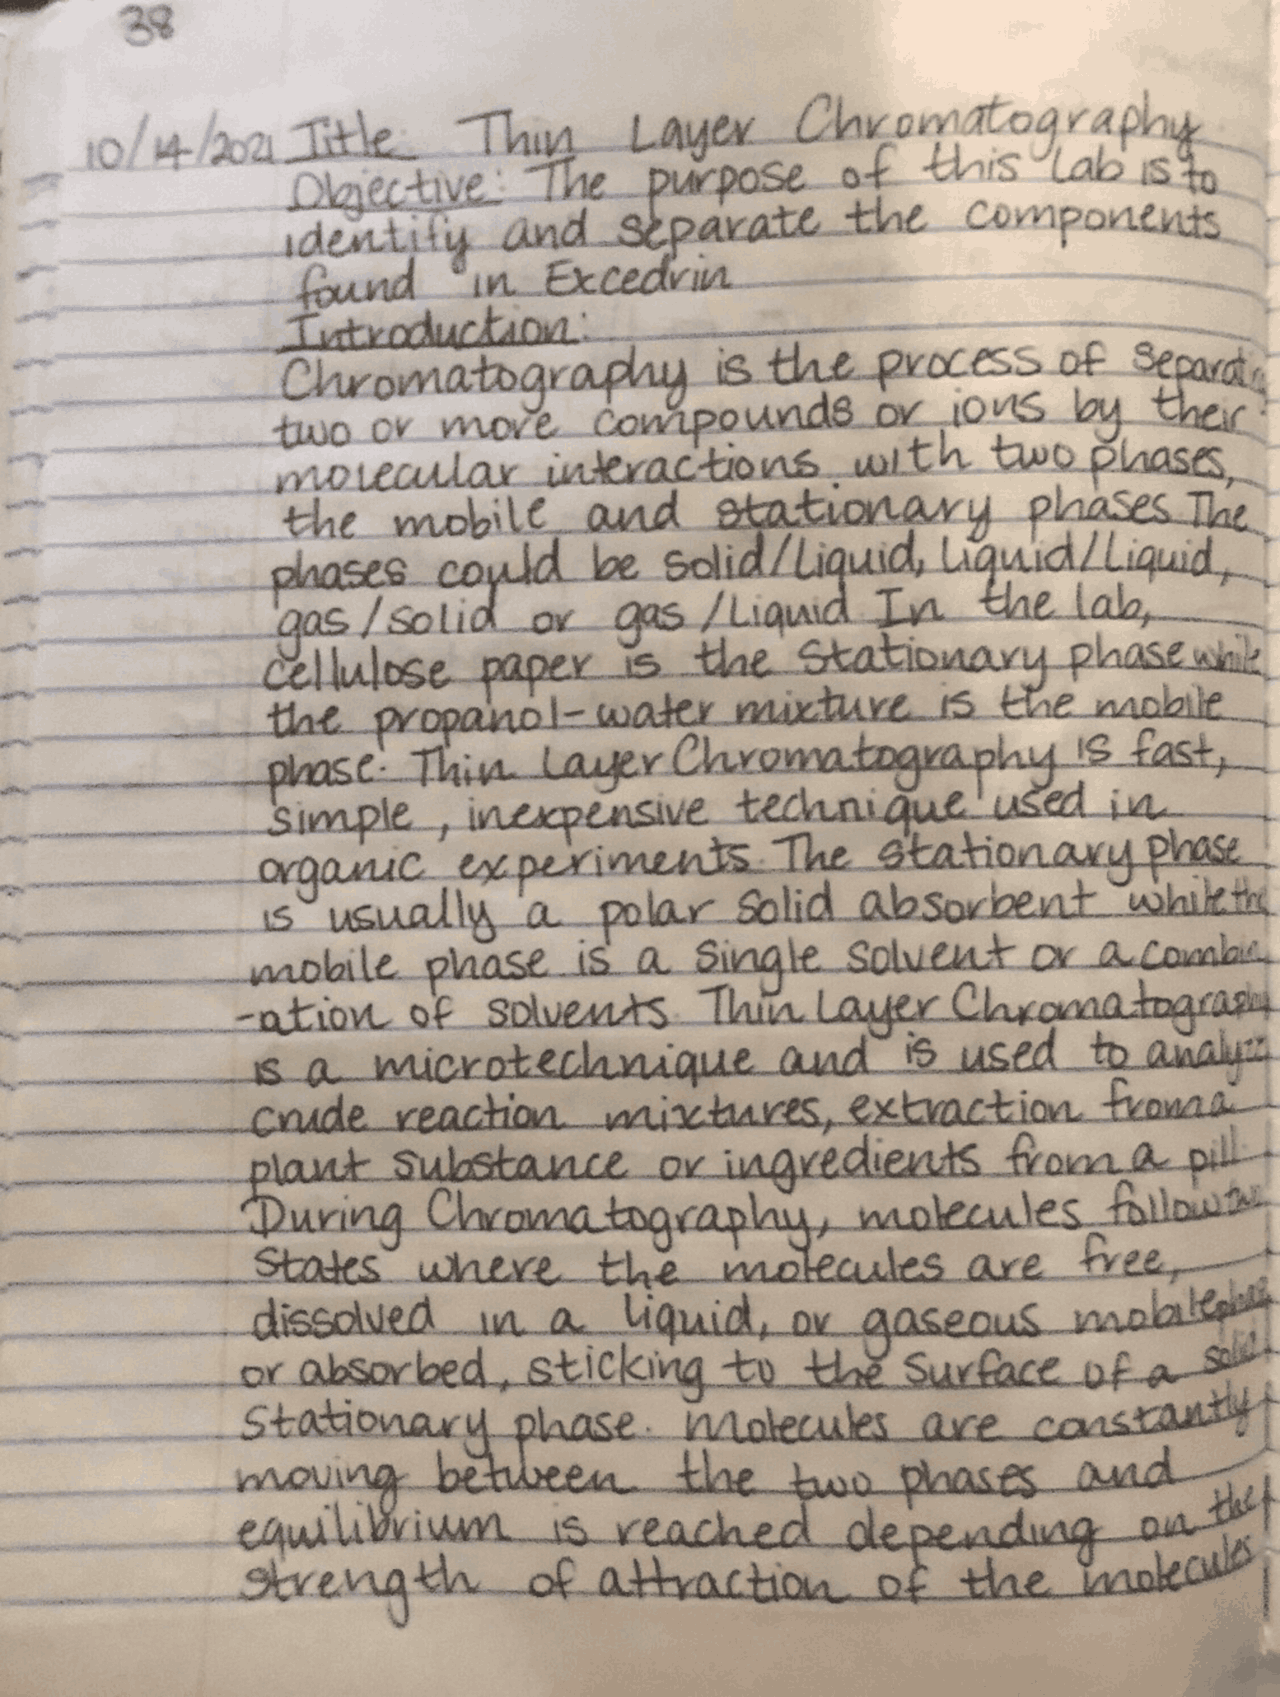 38
10/14/2021 Title: Thin Layer Chromatography
Objective: The purpose of this lab is to
identify and separate the components
found in Excedrin
Introduction:
Chromatography is the process of separating
two or more compounds or ions by their
molecular interactions with two phases,
the mobile and stationary phases The
phases could be solid/Liquid, Liquid/Liquid,
gas/solid or gas/Liquid In the lab,
cellulose paper is the stationary phase while
the propanol-water mixture is the mobile
phase. Thin Layer Chromatography is fast,
simple, inexpensive technique used in
organic experiments. The stationary phase
is usually a polar solid absorbent while the
mobile phase is a single solvent or a combin
-ation of solvents. Thin Layer Chromatography
is a microtechnique and is used to analyze
crude reaction mixtures, extraction from a
plant substance or ingredients from a pill.
During Chromatography, molecules follow two
states where the molecules are free,
dissolved in a liquid, or gaseous mobile phase
or absorbed, sticking to the surface of a solid
stationary phase. Molecules are constantly
moving between the two phases and
equilibrium is reached depending on the
strength of attraction of the molecules